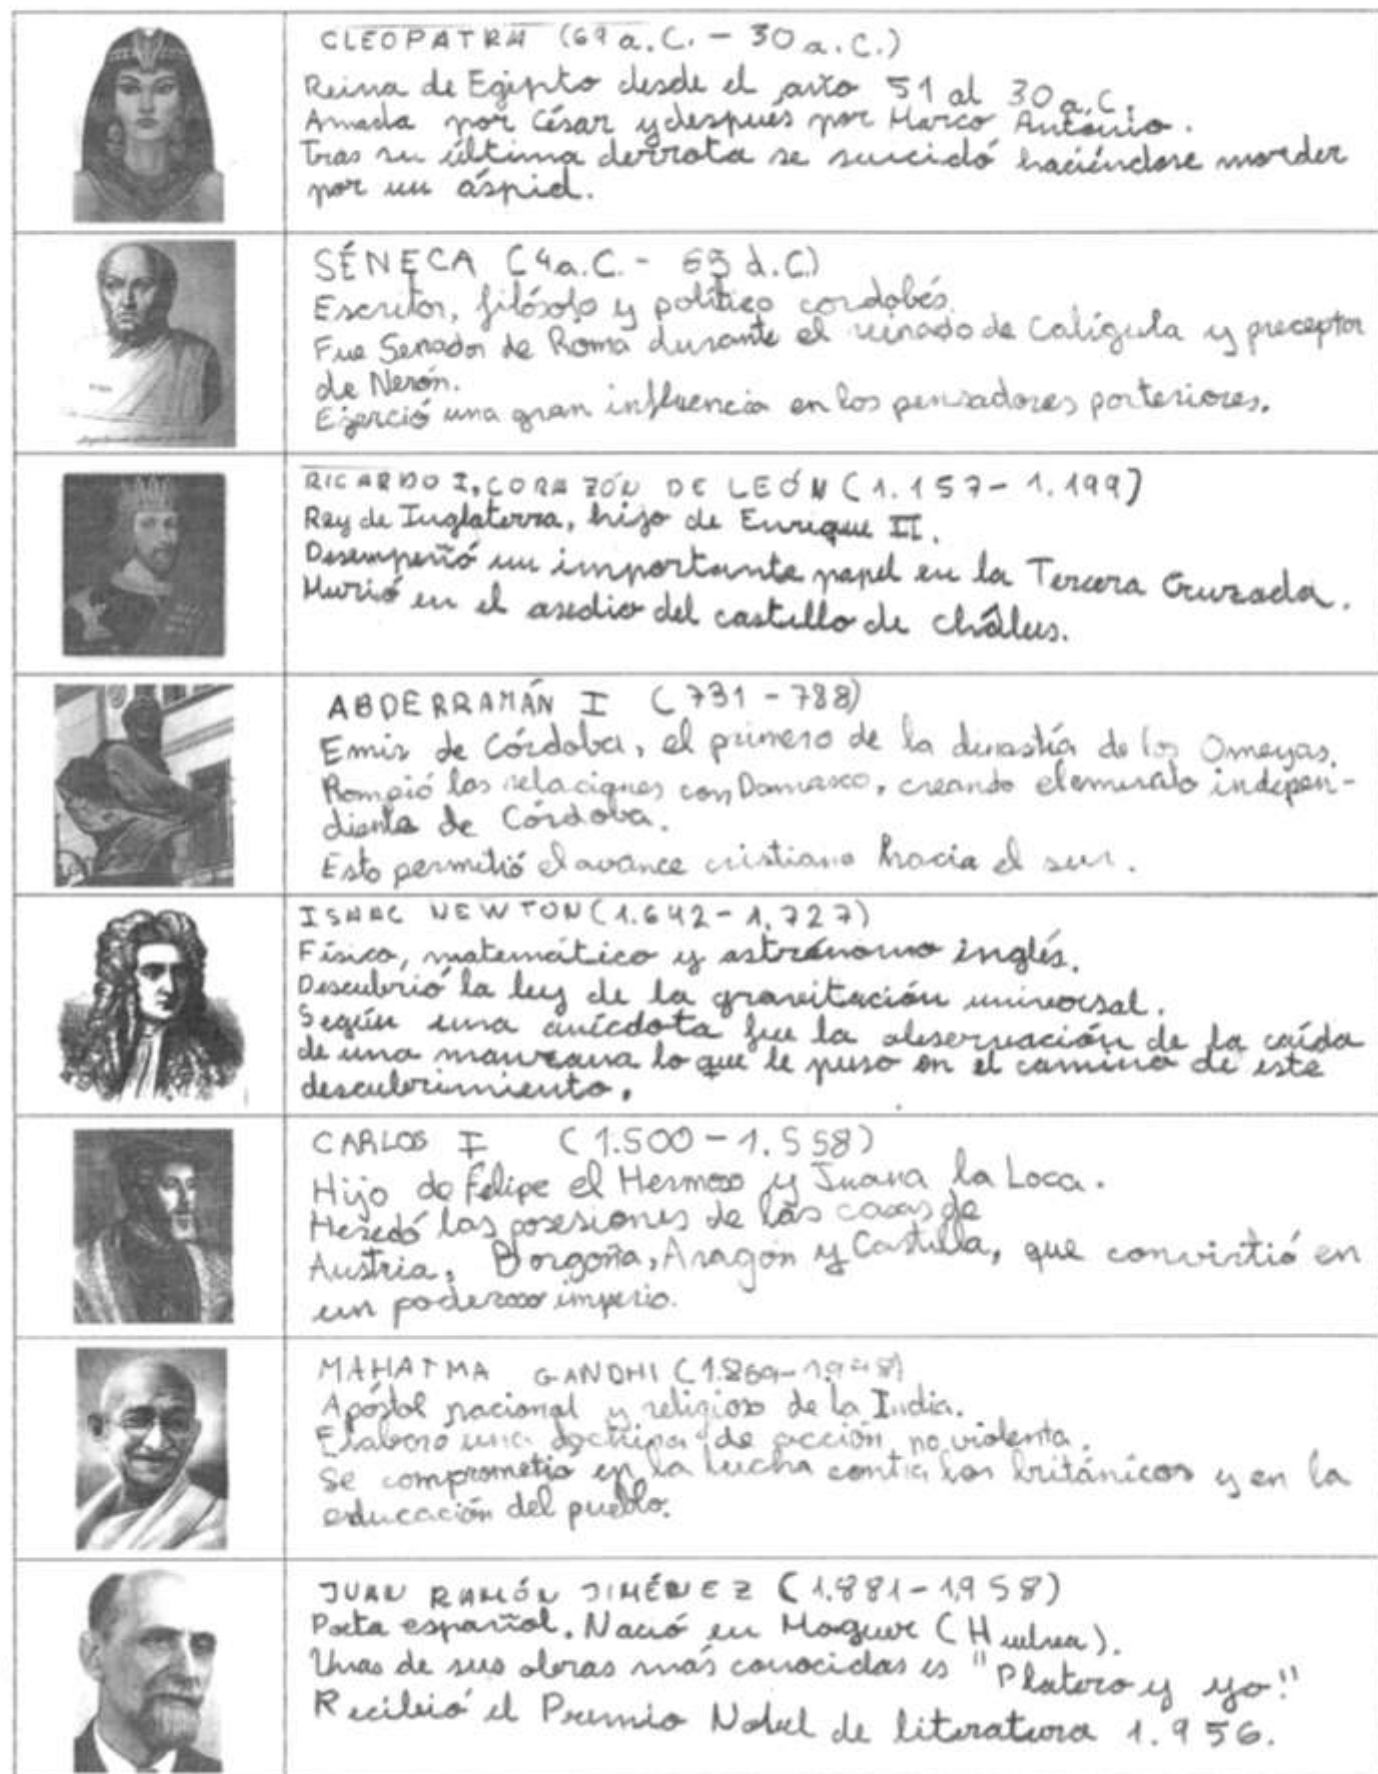 CLEOPATRA (69 a.C. - 30 a.C.)
Reina de Egipto desde el año 51 al 30 a.C.
Amada por César y después por Marco Antonio.
Tras su última derrota se suicidó haciéndose morder
por un áspid.
SÉNECA (4a.C. - 65 d.C)
Escritor, filósofo y político cordobés.
Fue Senador de Roma durante el reinado de Calígula y preceptor
de Nerón.
Ejerció una gran influencia en los pensadores porteriores.
RICARDO I, CORAZÓN DE LEÓN (1.157 - 1.199)
Rey de Inglaterra, hijo de Enrique II.
Desempeñó un importante papel en la Tercera Cruzada.
Murió en el asedio del castillo de Châlus.
ABDERRAMÁN I (731 - 788)
Emir de Córdoba, el primero de la dinastía de los Omeyas.
Rompió las relaciones con Damasco, creando el emirato indepen-
diente de Córdoba.
Esto permitió el avance cristiano hacia el sur.
ISAAC NEWTON (1.642 - 1.727)
Físico, matemático y astrónomo inglés.
Descubrió la ley de la gravitación universal.
Según una anécdota fue la observación de la caída
de una manzana lo que le puso en el camino de este
descubrimiento.
CARLOS I (1.500 - 1.558)
Hijo de Felipe el Hermoso y Juana la Loca.
Heredó las posesiones de las casas de
Austria, Borgoña, Aragón y Castilla, que convirtió en
un poderoso imperio.
MAHATMA GANDHI (1.869 - 1.948)
Apóstol nacional y religioso de la India.
Elaboró una doctrina de acción no violenta.
Se comprometió en la lucha contra los británicos y en la
educación del pueblo.
JUAN RAMÓN JIMÉNEZ (1.881 - 1.958)
Poeta español. Nació en Moguer (Huelva).
Unas de sus obras más conocidas es "Platero y yo"
Recibió el Premio Nobel de literatura 1.956.